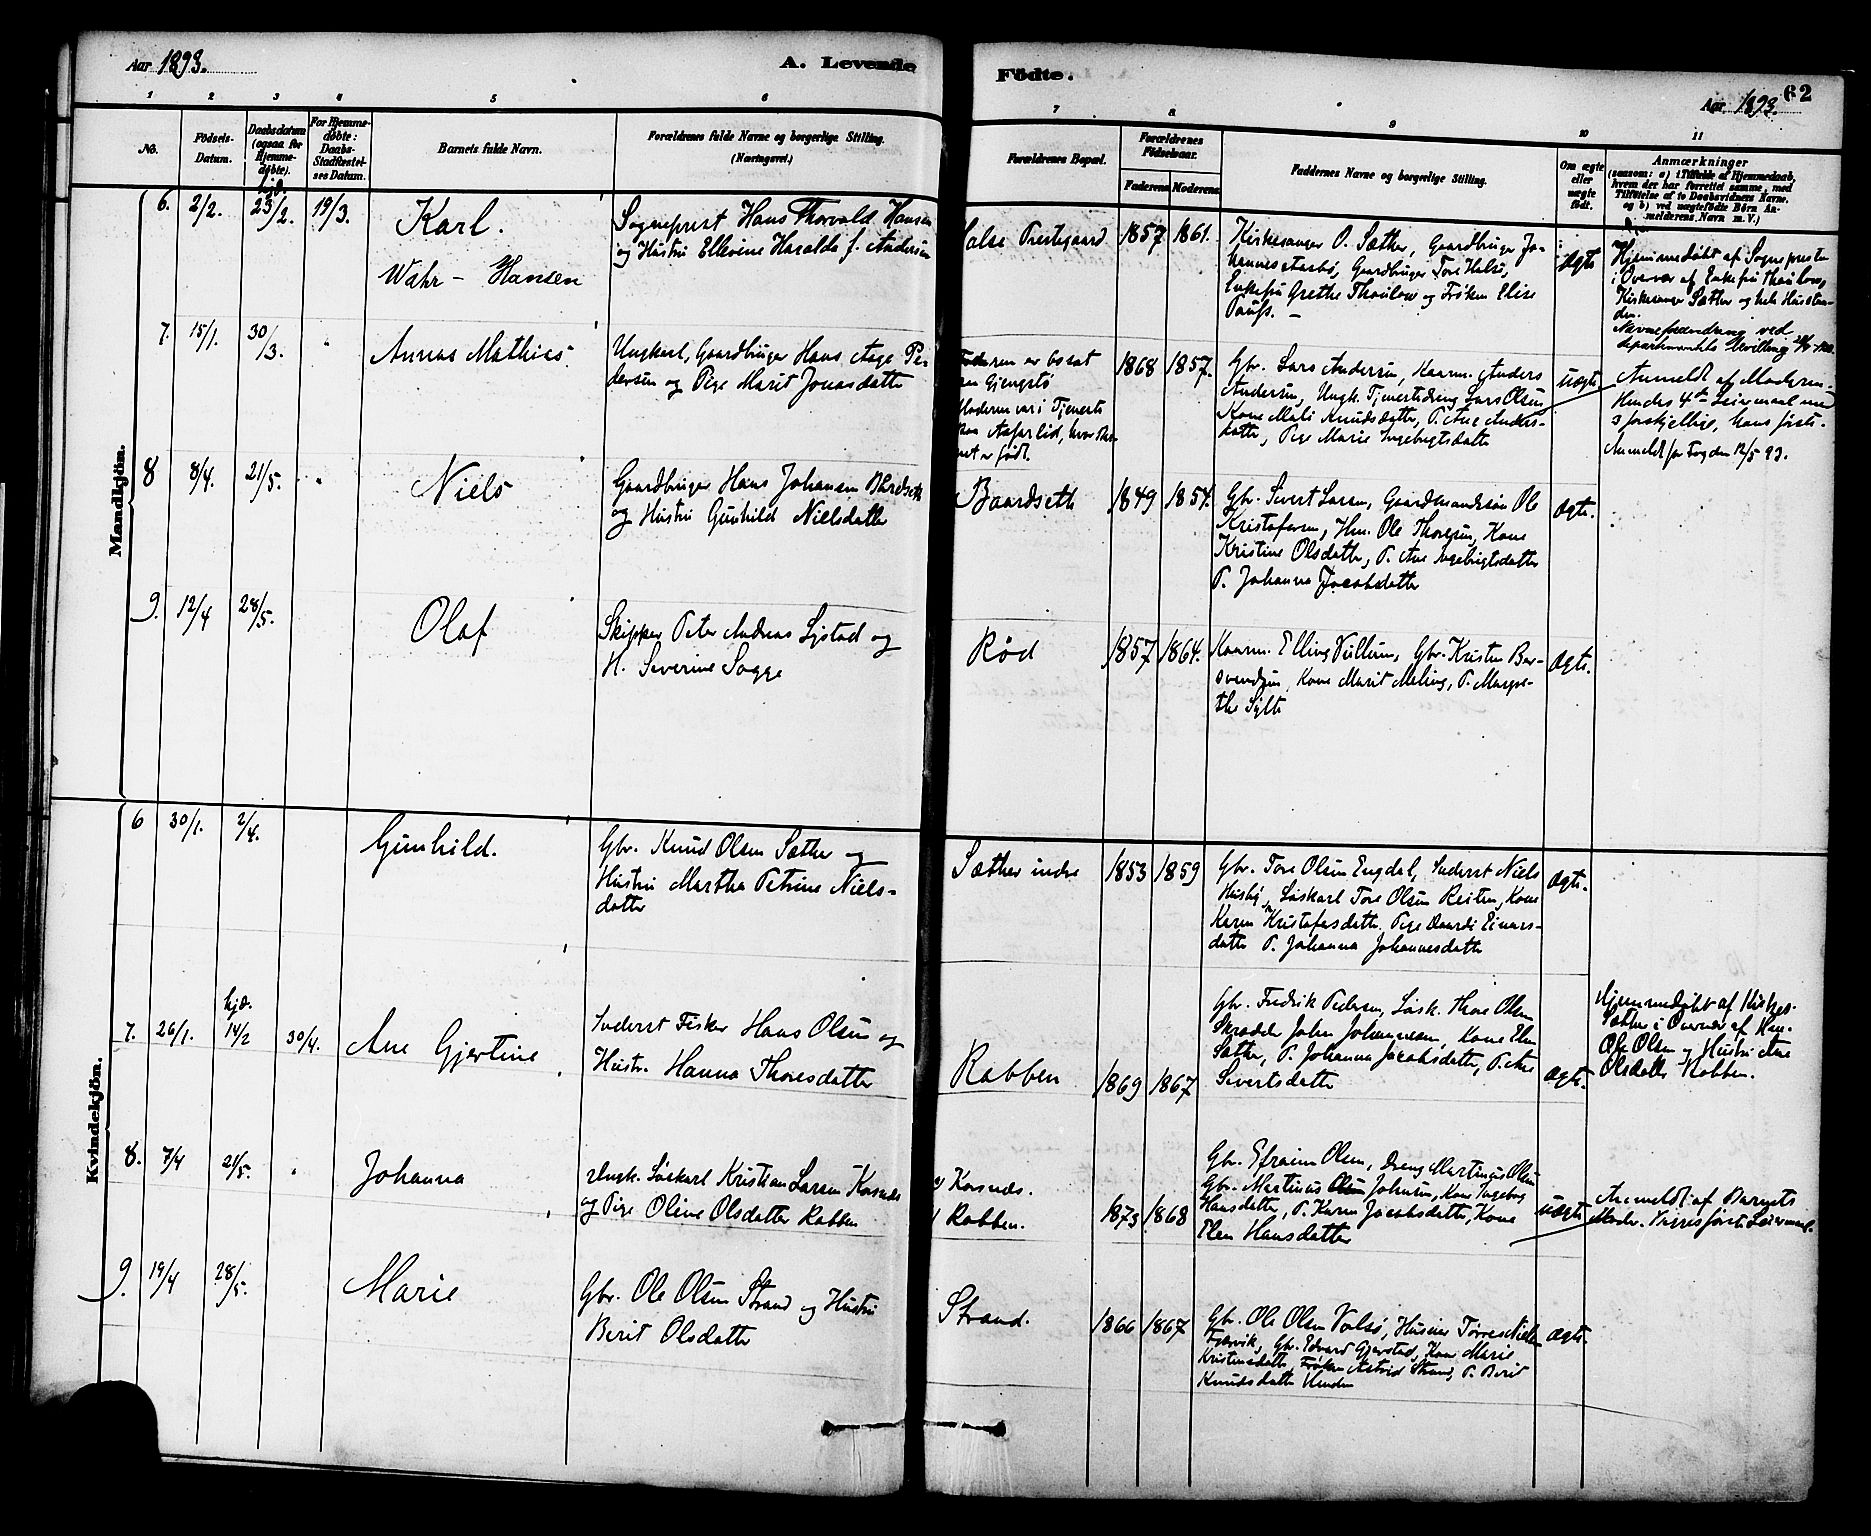 Aar 1893.
A. Levende
Födte.
Aar 1893.
62
1 2 3 4 5 6
7 8 9 10 11
No.
Födsels-
Datum.
Daabsdatum
(ogsaa for
Hjemme-
døbte).
For Hjemme-
døbte:
Daabs-
Stadfæstel-
ses Datum.
Barnets fulde Navn.
Forældrenes fulde Navne og borgerlige Stilling.
(Næringsvei.)
Forældrenes Bopæl.
Forældrenes
Födselsaar.
Faderens.
Moderens.
Faddernes Navne og borgerlige Stilling.
Om ægte
eller
uægte
födt.
Anmærkninger
(saasom: a) i Tilfælde af Hjemmedaab,
hvem der har forrettet samme, med
Tilføielse af to Daabsvidners Navne,
og b) ved uægtefödte Börn An-
melderens Navn m. V.)
Mandkjön.
6. 2/2. hjd. 23/2. 19/3.
Karl.
Wahr - Hansen
Sogneprest Hans Thorvald Hansen
og Hustru Ellevine Haralda f. Andersen
Halse Prestegaard 1857 1861.
Kirkesanger O. Sæther, Gaardbruger Jo-
hannes Aarbø, Gaardbruger Tore Halse,
Enkefru Grethe Thaulow og Frøken Elise
Paus. -
Ægte
Hjemmedøbt af Sognepresten
i Overvær af Enkefru Thaulow,
Kirkesanger Sæther og hele Husstan-
den.
Navneforandring ved
departementets Bevilling
7. 15/1. 30/3. "
Annas Mathias
Ungkarl, Gaardbruger Hans Aage Pe-
dersen og Pige Marit Jonasdatter
Faderen er bosat
paa Gjengstø
Moderen var i Tjeneste
paa Aasarlid, hvor Bar-
net er født.
1868 1857.
Gbr. Lars Andersen, Kaarm. Anders
Andersen, Ungk. Tjenestedreng Lars Olsen
Kone Mali Knudsdatter, P. Ane Anders-
datter, Pige Marie Ingebrigtsdatter
uægte
Anmeldt af Moderen.
Hendes 4de Leiermaal med
3 forskjellige, hans første.
Anmeldt for Fogden 12/5 93.
8 8/4. 21/5. "
Niels
Gaardbruger Hans Johansen Bardseth
og Hustru Gunhild Nielsdatter
Baardseth 1849 1854.
Gbr. Sivert Larsen, Gaardmandssøn Ole
Kristofersen, Hm. Ole Thoresen, Kone
Kristine Olsdatter, P. Ane Ingebrigtsdatter
P. Johanna Jacobsdatter
Ægte.
9. 12/4 28/5.
Olaf
Skipper Peter Andreas Lystad og
H. Severine Sogge
Rød 1857 1864.
Kaarm. Elling Vullum, Gbr. Kristen Ber-
svendsen, Kone Marit Meling, P. Margre-
the Sylte
Ægte.
Kvindekjön.
6 30/1. 2/4.
Gunhild.
Gbr. Knud Olsen Sæther og
Hustru Martha Petrine Niels-
datter
Sæther indre 1853 1859
Gbr. Tore Olsen Engdal, Inderst Niels
Husby, Løskarl Tore Olsen Reiten, Kone
Karen Kristofersdatter, Pige Baardi Einars-
datter P. Johanna Johannesdatter
Ægte.
7. 26/1. hjd. 14/2 30/4.
Ane Gjertine
Inderst Fisker Hans Olsen og
Hustr. Hanna Thoresdatter
Rabben 1869 1867
Gbr. Fredrik Pedersen, Løsk. Thore Olsen
Skrædder Johan Johannesen, Kone Elen
Sæther, P. Johanna Jacobsdatter, P. Ane
Sivertsdatter
Ægte.
Hjemmedøbt af Kirkes.
Sæther i Overvær af Hm.
Ole Olsen og Hustru Ane
Olsdatter Rabben.
8. 7/4 21/5. "
Johanna
Ungk. Løskarl Kristian Larsen Korsnæs
og Pige Oline Olsdatter Rabben
Korsnæs.
Rabben. 1873 1868
Gbr. Efraim Olsen, Dreng Martinus Olsen
Gbr. Martinus Johnsen, Kone Ingeborg
Hansdatter, P. Karen Jacobsdatter, Kone
Elen Hansdatter
uægte
Anmeldt af Barnets
Moder. Begges første Leiermaal.
9. 19/4 28/5.
Marie
Gbr. Ole Olsen Strand og Hustru
Berit Olsdatter
Strand. 1866 1867
Gbr. Ole Olsen Valsø, Husmand Torres Nielsen
Gbr. Edvard Gjerstad, Kone Marie
Kristensdatter, Frøken Astrid Strand, P. Berit
Knudsdatter Henden
Ægte.